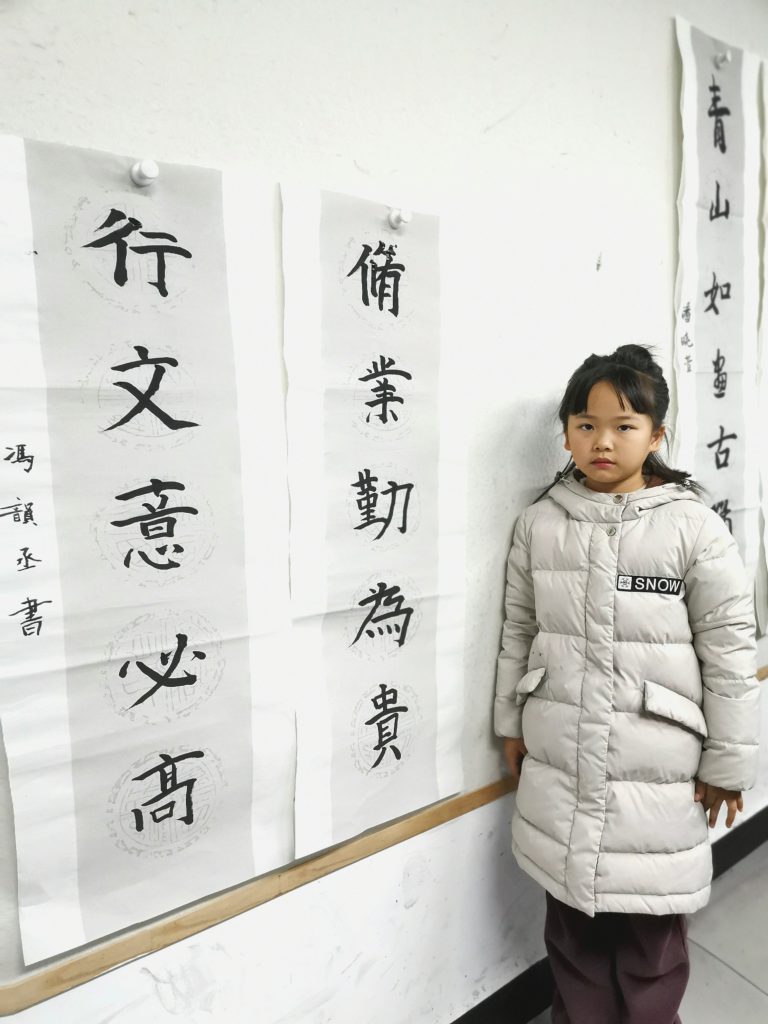 青山如畫古
潘曉萱
脩業勤為貴
行文意必高
馮韻丞書
SNOW